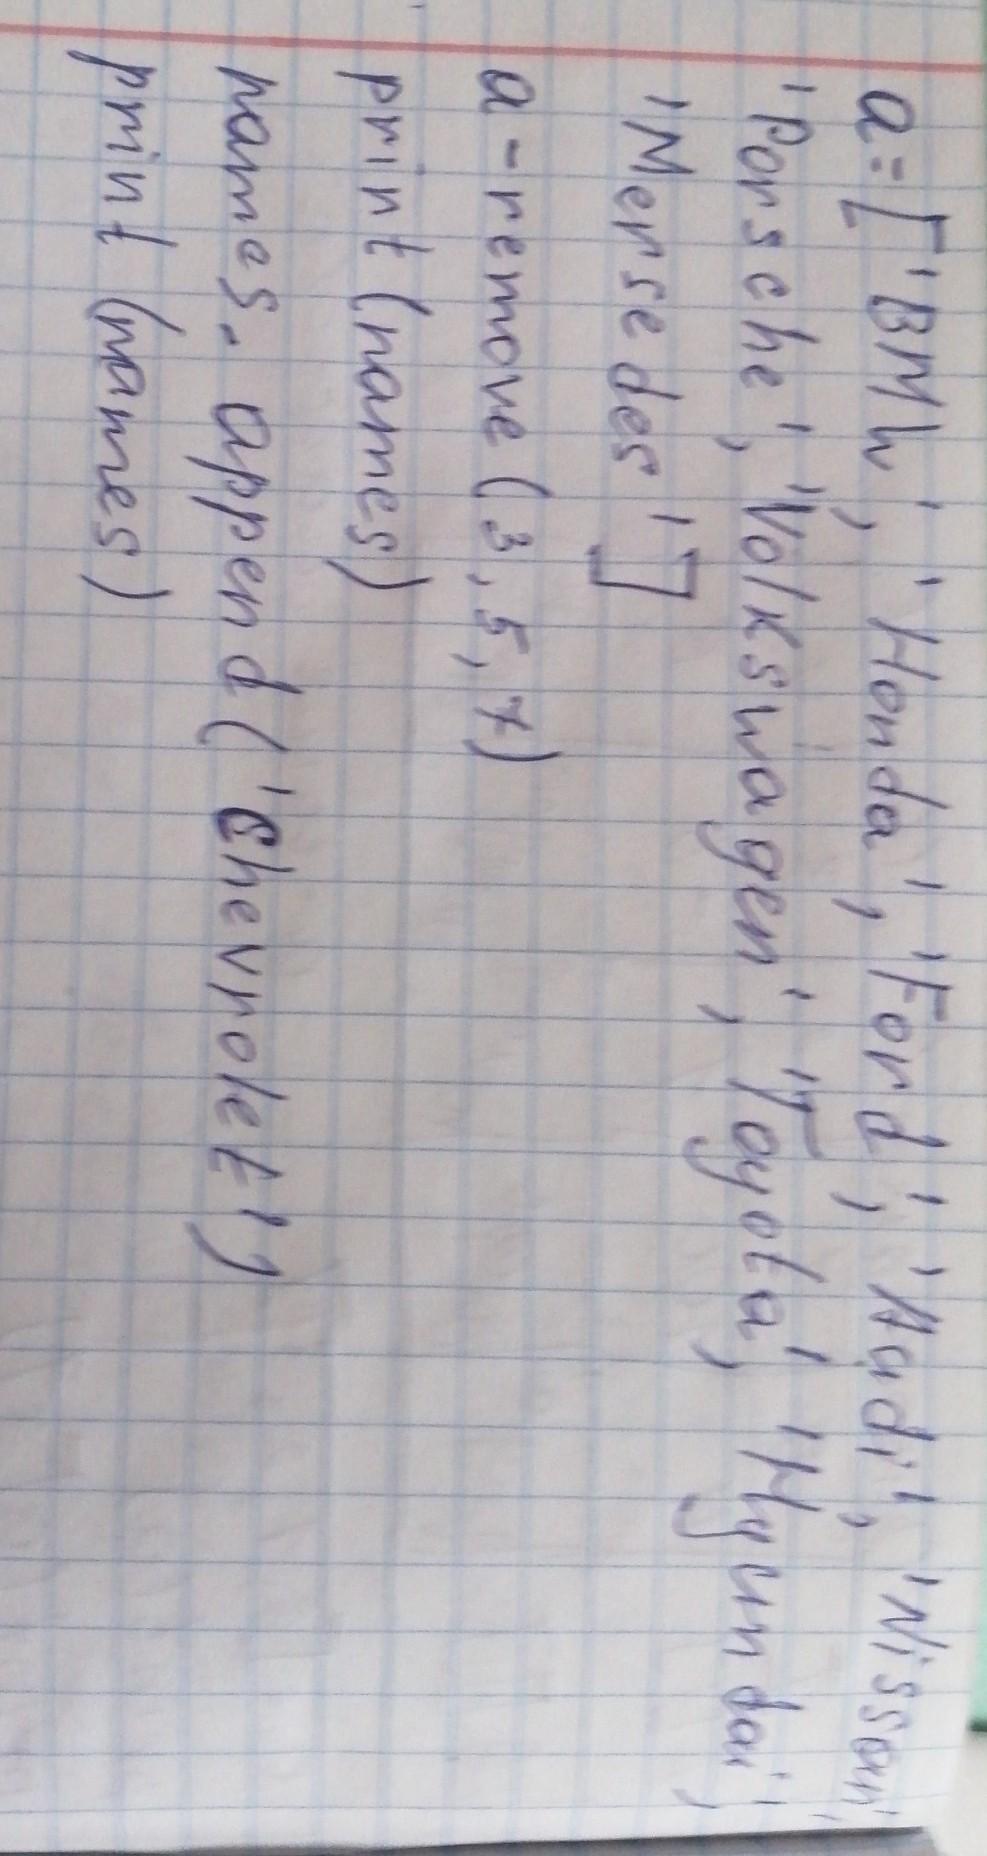 a=['BMW', 'Honda', 'Ford', 'Audi', 'Nissan',
'Porsche', 'Volkswagen', 'Toyota', 'Hyundai',
'Mersedes']
a-remove (3,5,7)
print (names)
names. append ('Chevrolet')
print (names)